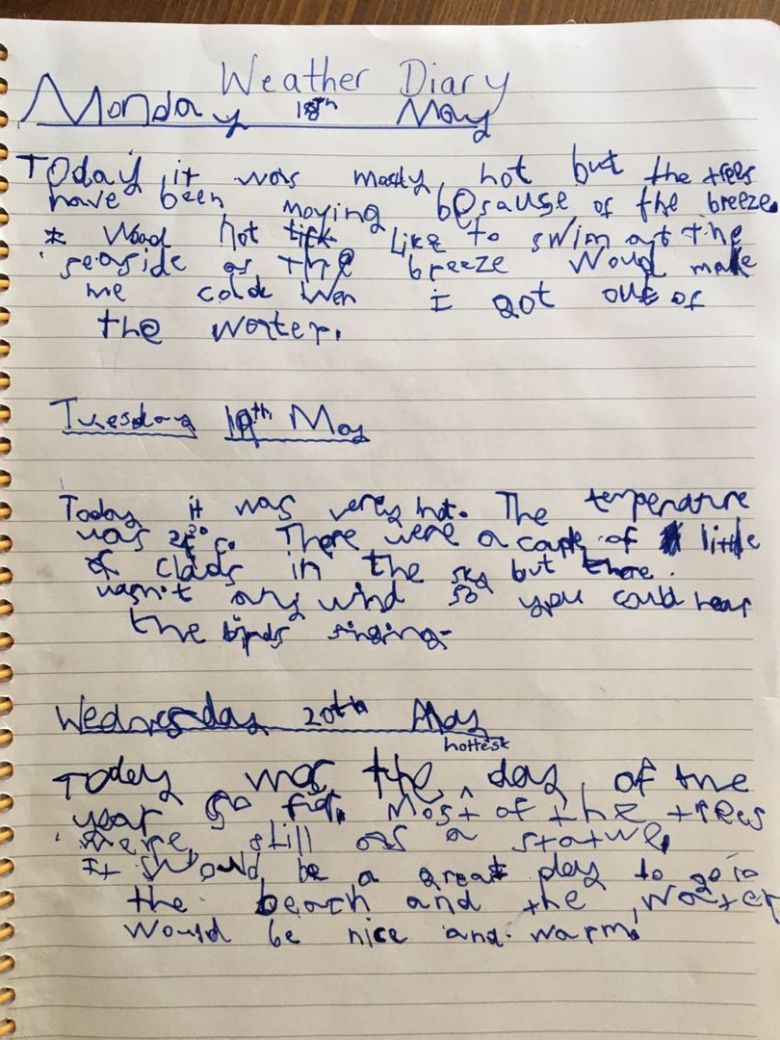 Weather Diary
Monday 18th May
Today it was mostly hot but the trees
have been moving besause of the breeze.
I Woud not like to swim at the
seaside as the breeze Woud make
me cold Wen I got out of
the water.
Tuesday 19th May
Today it was very hot. The temperature
was c. There were a couple of little
of clouds in the sky but there
wasn't any wind so you could hear
the birds singing.
Wednesday 20th May
Today was the hottest day of the
year so far. Most of the trees
were still as a statwe.
It Would be a great day to go to
the beach and the water
would be nice and warm.